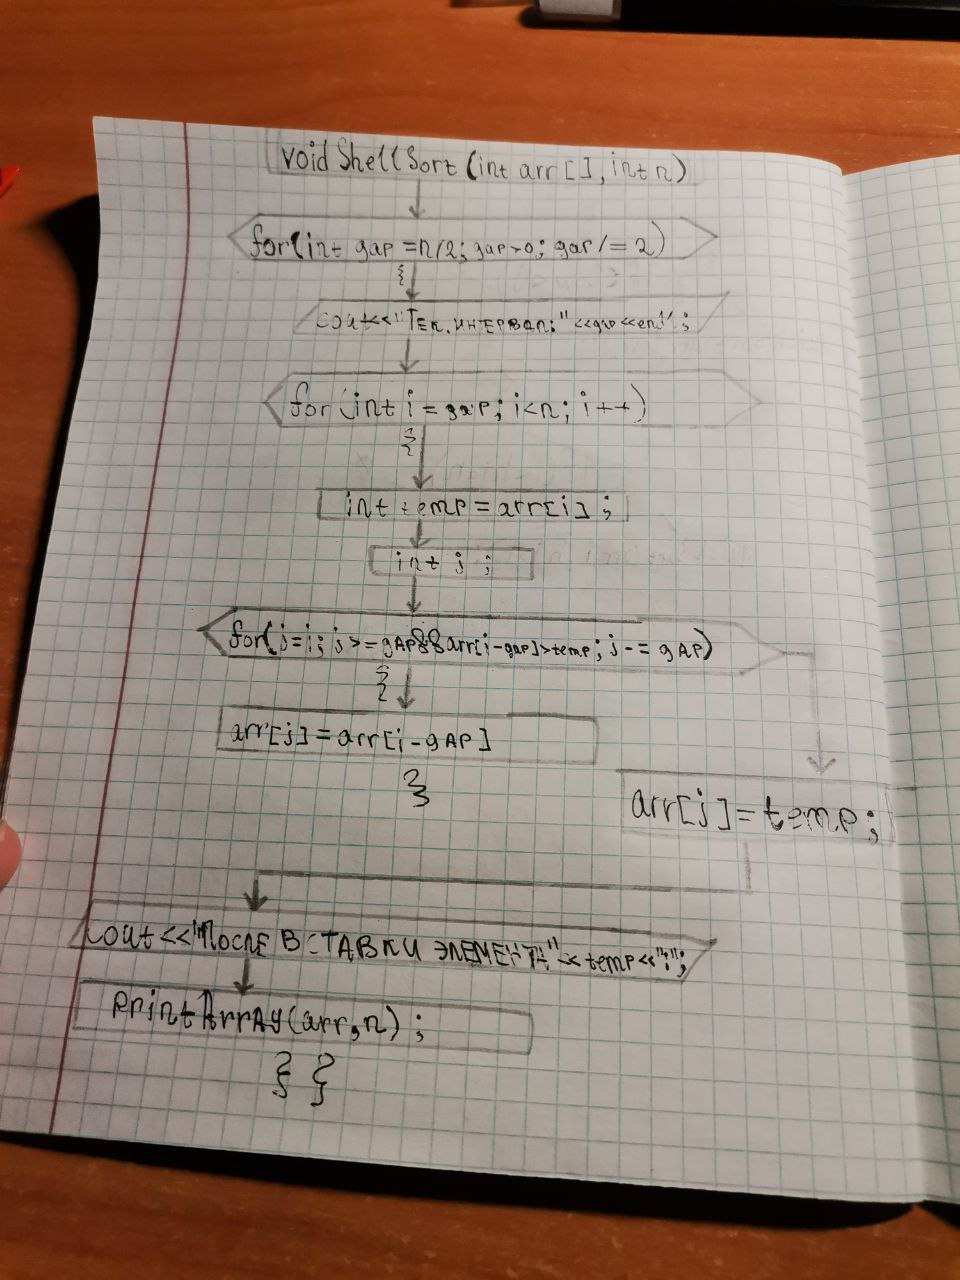 void ShellSort (int arr [], int n)
for(int gap = n/2; gap>0; gap /= 2)
{
cout<<"Тек. интервал:"<<gap<<endl;
for (int i = gap; i<n; i++)
{
int temp = arr[i];
int j ;
for(j=i; j>=gAp&&arr[j-gap]>temp; j-= gAp)
{
arr[j]=arr[j-gAp]
}
arr[j]=temp;
cout<<"После вставки элемента"<<temp<<":";
printArrAy(arr,n);
} }